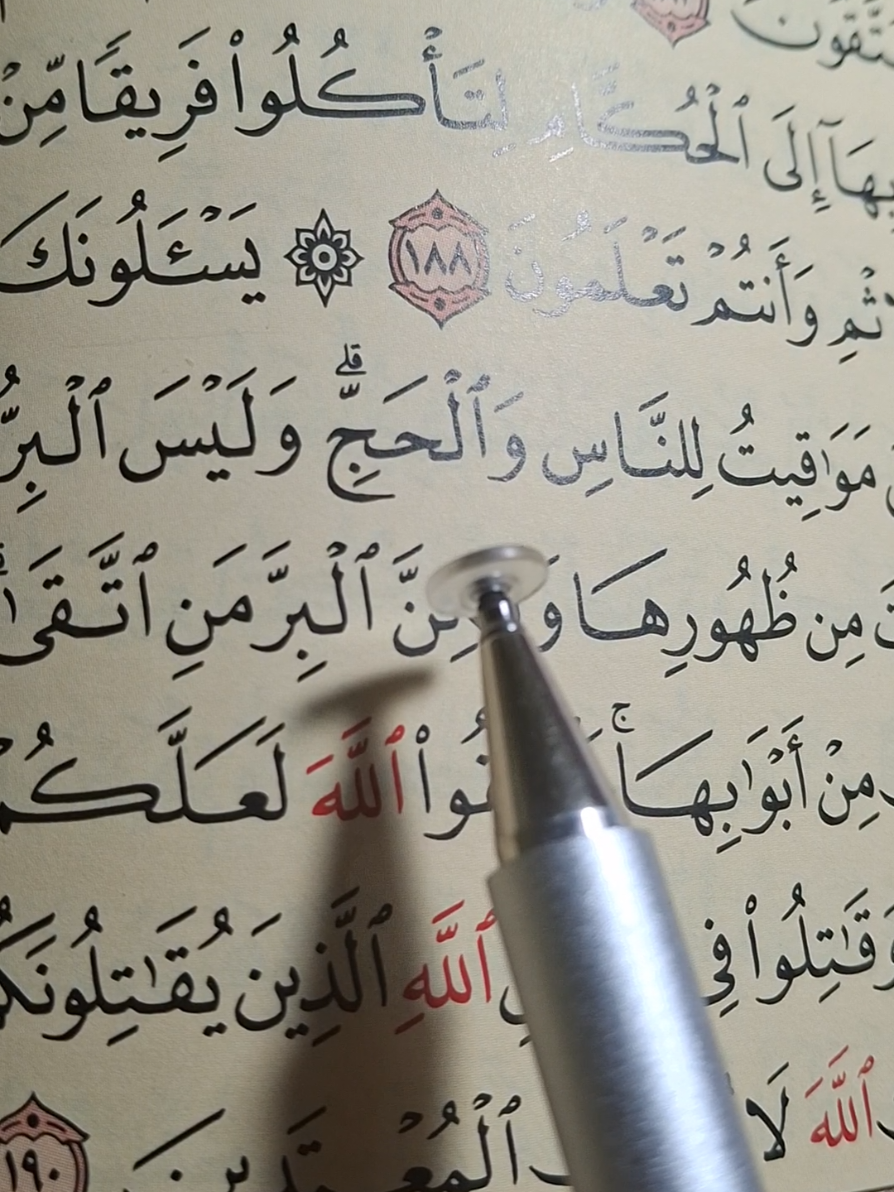 بِهَآ إِلَى ٱلْحُكَّامِ لِتَأْكُلُوا۟ فَرِيقًا مِّنْ
وَأَنتُمْ تَعْلَمُونَ ١٨٨ ۞ يَسْـَٔلُونَكَ
مَوَٰقِيتُ لِلنَّاسِ وَٱلْحَجِّ ۗ وَلَيْسَ ٱلْبِرُّ
مِن ظُهُورِهَا ٱلْبِرَّ مَنِ ٱتَّقَىٰ
مِنْ أَبْوَٰبِهَا ۚ ٱللَّهَ لَعَلَّكُمْ
وَقَٰتِلُوا۟ فِى ٱللَّهِ ٱلَّذِينَ يُقَٰتِلُونَكُمْ
ٱللَّهَ لَا ٱلْمُعْتَدِينَ ١٩٠